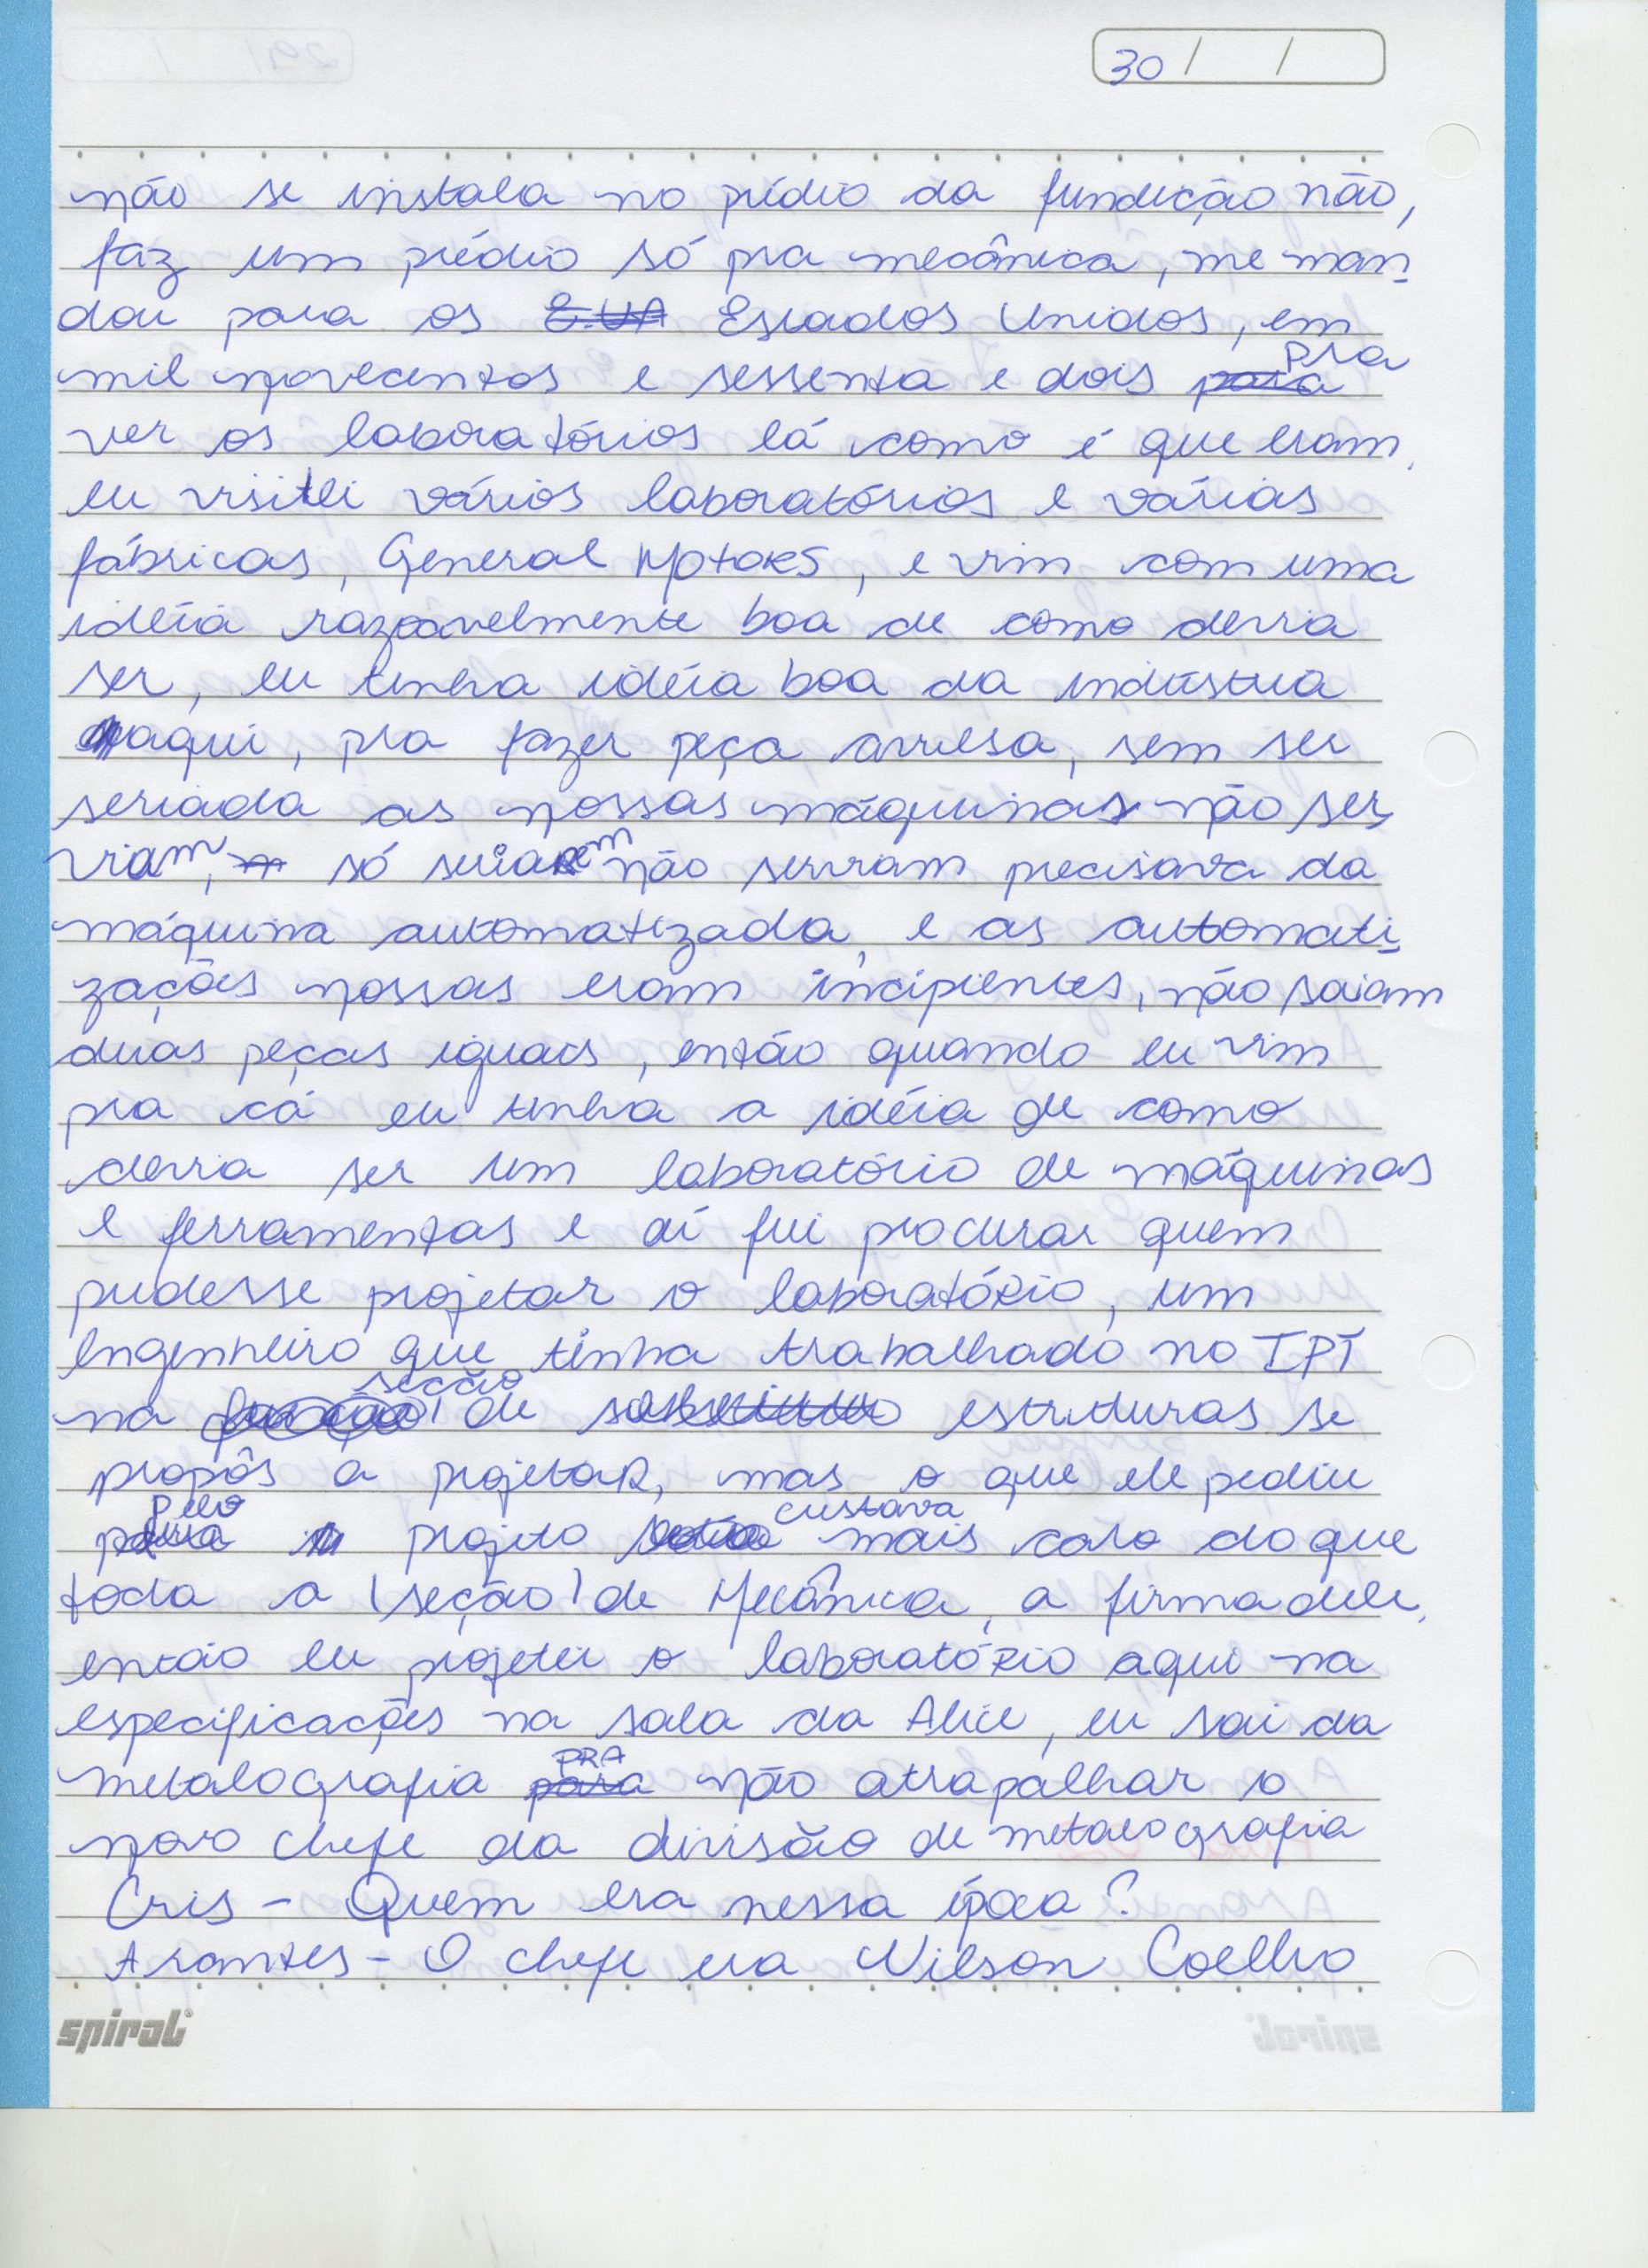 30 / /
não se instala no prédio da fundição não,
faz um prédio só pra mecânica, me man-
dou para os E.UA Estados Unidos, em
mil novecentos e sessenta e dois para pra
ver os laboratórios lá como é que eram,
eu visitei vários laboratórios e várias
fábricas, General Motors, e vim com uma
idéia razoavelmente boa de como devia
ser, eu tinha idéia boa da indústria
daqui, pra fazer peça avulsa, sem ser
seriada as nossas máquinas não ser-
viam, só seriarem não serviam precisava da
máquina automatizada, e as automati-
zações nossas eram incipientes, não saiam
duas peças iguais, então quando eu vim
pra cá eu tinha a idéia de como
devia ser um laboratório de máquinas
e ferramentas e aí fui procurar quem
pudesse projetar o laboratório, um
engenheiro que tinha trabalhado no IPT
na secção de estruturas se
propôs a projetar, mas o que ele pediu
pelo projeto custava mais caro do que
toda a (seção) de Mecânica, a firma dele,
então eu projetei o laboratório aqui na
especificações na sala da Alice, eu sai da
metalografia para PRA não atrapalhar o
novo chefe da divisão de metalografia
Cris - Quem era nessa época?
Arantes - O chefe era Wilson Coelho
spiral®